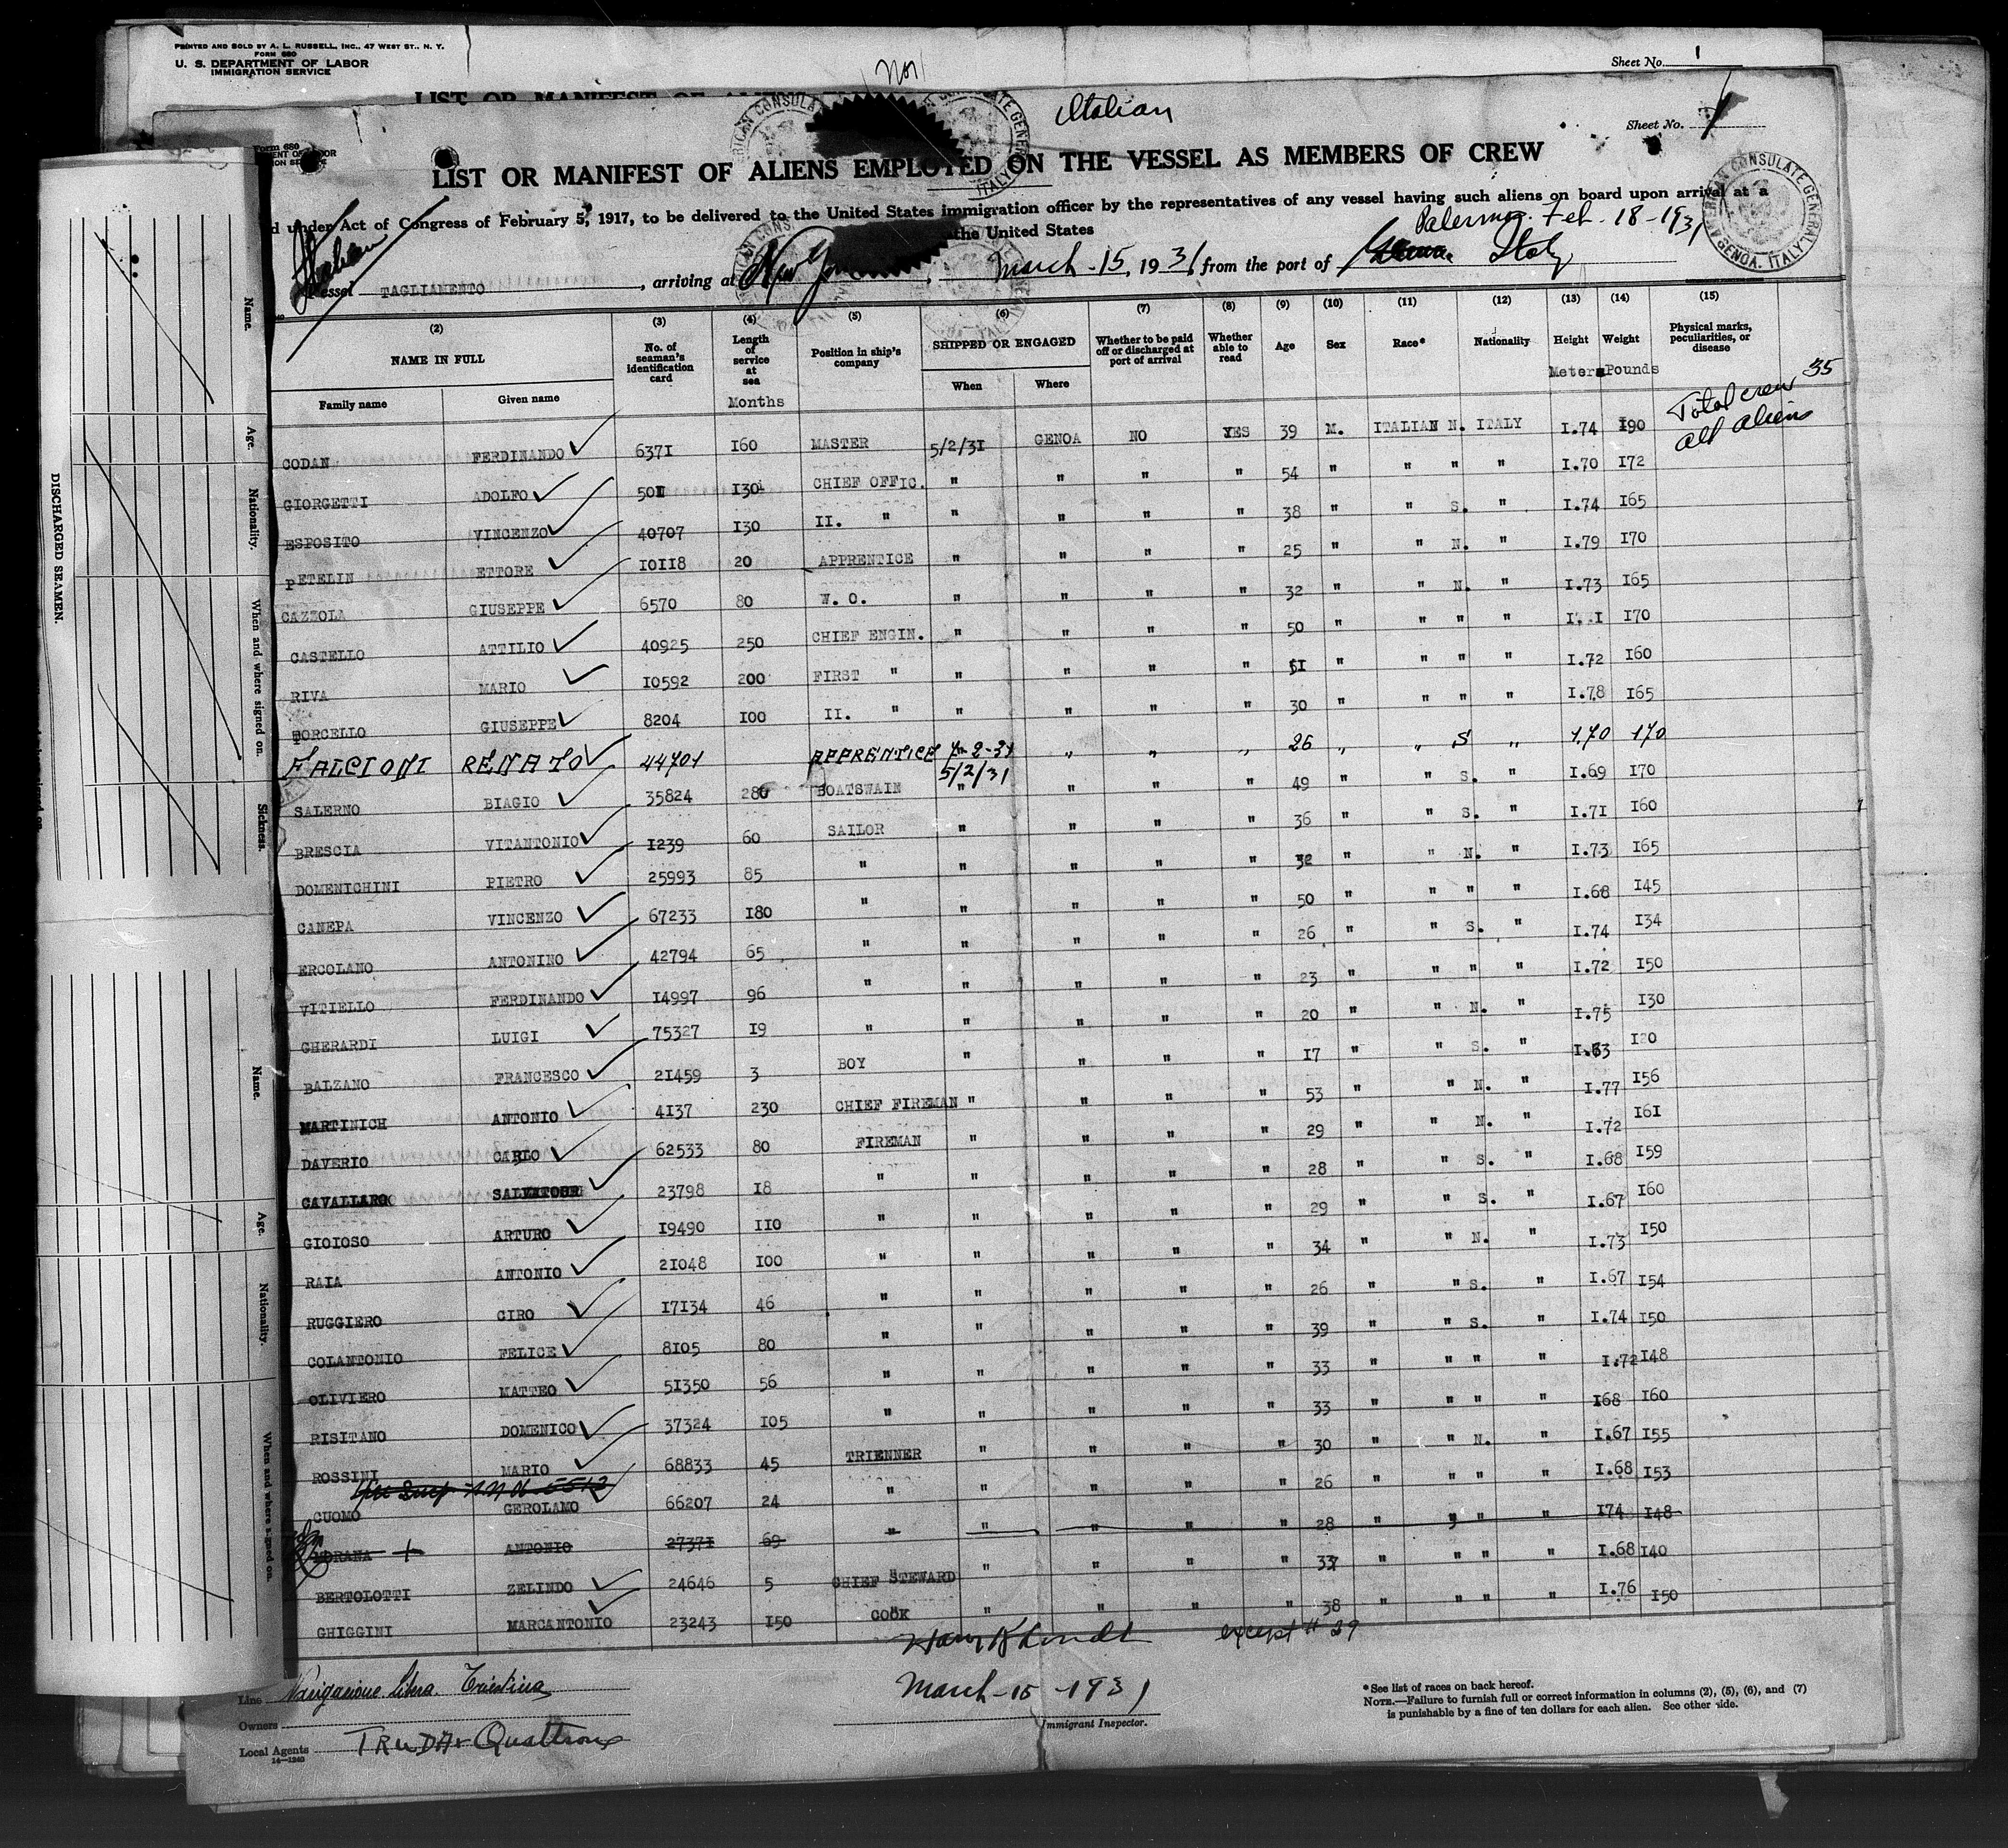 PRINTED AND SOLD BY A. L. RUSSELL, INC., 47 WEST ST., N. Y.
FORM 680
U. S. DEPARTMENT OF LABOR
IMMIGRATION SERVICE
Sheet No. 1
Italian
Form 680
Sheet No. 1
LIST OR MANIFEST OF ALIENS EMPLOYED ON THE VESSEL AS MEMBERS OF CREW
under Act of Congress of February 5, 1917, to be delivered to the United States immigration officer by the representatives of any vessel having such aliens on board upon arrival at a
the United States
Palermo. Feb-18-1931
Italian
Vessel TAGLIAMENTO, arriving at New York, March-15, 1931 from the port of Genoa. Italy
AMERICAN CONSULATE GENERAL GENOA, ITALY
(2) (3) (4) (5) (6) (7) (8) (9) (10) (11) (12) (13) (14) (15)
NAME IN FULL No. of seaman's identification card Length of service at sea Position in ship's company SHIPPED OR ENGAGED Whether to be paid off or discharged at port of arrival Whether able to read Age Sex Race* Nationality Height Weight Physical marks, peculiarities, or disease
Family name Given name Months When Where Meters Pounds
Total crew 35
all aliens
CODAN FERDINANDO 6371 160 MASTER 5/2/31 GENOA NO YES 39 M. ITALIAN N. ITALY 1.74 190
GIORGETTI ADOLFO 501 130 CHIEF OFFIC. " " " " 54 " " " " 1.70 172
ESPOSITO VINCENZO 40707 130 II. " " " " " 38 " " S. " 1.74 165
PETELIN ETTORE 10118 20 APPRENTICE " " " " 25 " " N. " 1.79 170
CAZZOLA GIUSEPPE 6570 80 W. O. " " " " 32 " " N. " 1.73 165
CASTELLO ATTILIO 40925 250 CHIEF ENGIN. " " " " 50 " " " " 170
RIVA MARIO 10592 200 FIRST " " " " " 51 " " " " 1.72 160
TORCELLO GIUSEPPE 8204 100 II. " " " " " 30 " " " " 1.78 165
FALCIONI RENATO 44701 APPRENTICE " " " 26 " " S " 1.70 170
SALERNO BIAGIO 35824 280 BOATSWAIN 5/2/31 " " " " 49 " " S. " 1.69 170
BRESCIA VITANTONIO 1239 60 SAILOR " " " " 36 " " S. " 1.71 160
DOMENICHINI PIETRO 25993 85 " " " " " 32 " " N. " 1.73 165
CANEPA VINCENZO 67233 180 " " " " " 50 " " " " 1.68 145
ERCOLANO ANTONINO 42794 65 " " " " " 26 " " S. " 1.74 134
VITIELLO FERDINANDO 14997 96 " " " " " 23 " " " " 1.72 150
GHERARDI LUIGI 75327 19 " " " " " 20 " " N. " 1.75 130
BALZANO FRANCESCO 21459 3 BOY " " " " 17 " " S. " 1.63 120
MARTINICH ANTONIO 4137 230 CHIEF FIREMAN " " " " 53 " " N. " 1.77 156
DAVERIO CARLO 62533 80 FIREMAN " " " " 29 " " N. " 1.72 161
CAVALLARO SALVATORE 23798 18 " " " " " 28 " " S. " 1.68 159
GIOIOSO ARTURO 19490 110 " " " " " 29 " " S. " 1.67 160
RAIA ANTONIO 21048 100 " " " " " 34 " " N. " 1.73 150
RUGGIERO CIRO 17134 46 " " " " " 26 " " S. " 1.67 154
COLANTONIO FELICE 8105 80 " " " " " 39 " " S. " 1.74 150
OLIVIERO MATTEO 51350 56 " " " " " 33 " " " " 1.72 148
RISITANO DOMENICO 37324 105 " " " " " 33 " " " 168 160
ROSSINI MARIO 68833 45 TRIENNER " " " " 30 " " N. " 1.67 155
CUOMO GEROLAMO 66207 24 " " " " " 26 " " " " 1.68 153
MORANA + ANTONIO 27371 69 " " " " " 28 " " " 174 148
BERTOLOTTI ZELINDO 24646 5 CHIEF STEWARD " " " " 37 " " " " 1.68 140
GHIGGINI MARCANTONIO 23243 150 COOK " " " " 38 " " " " 1.76 150
except # 29
Line Navigazione Libera Triestina
March-15-1931
Owners
Immigrant Inspector.
Local Agents TRUDA & Quattrone
14-1240
*See list of races on back hereof.
NOTE.—Failure to furnish full or correct information in columns (2), (5), (6), and (7)
is punishable by a fine of ten dollars for each alien. See other side.
DISCHARGED SEAMEN.
Name.
Age.
Nationality.
When and where signed on.
Sickness.
Name.
Age.
Nationality.
When and where signed on.